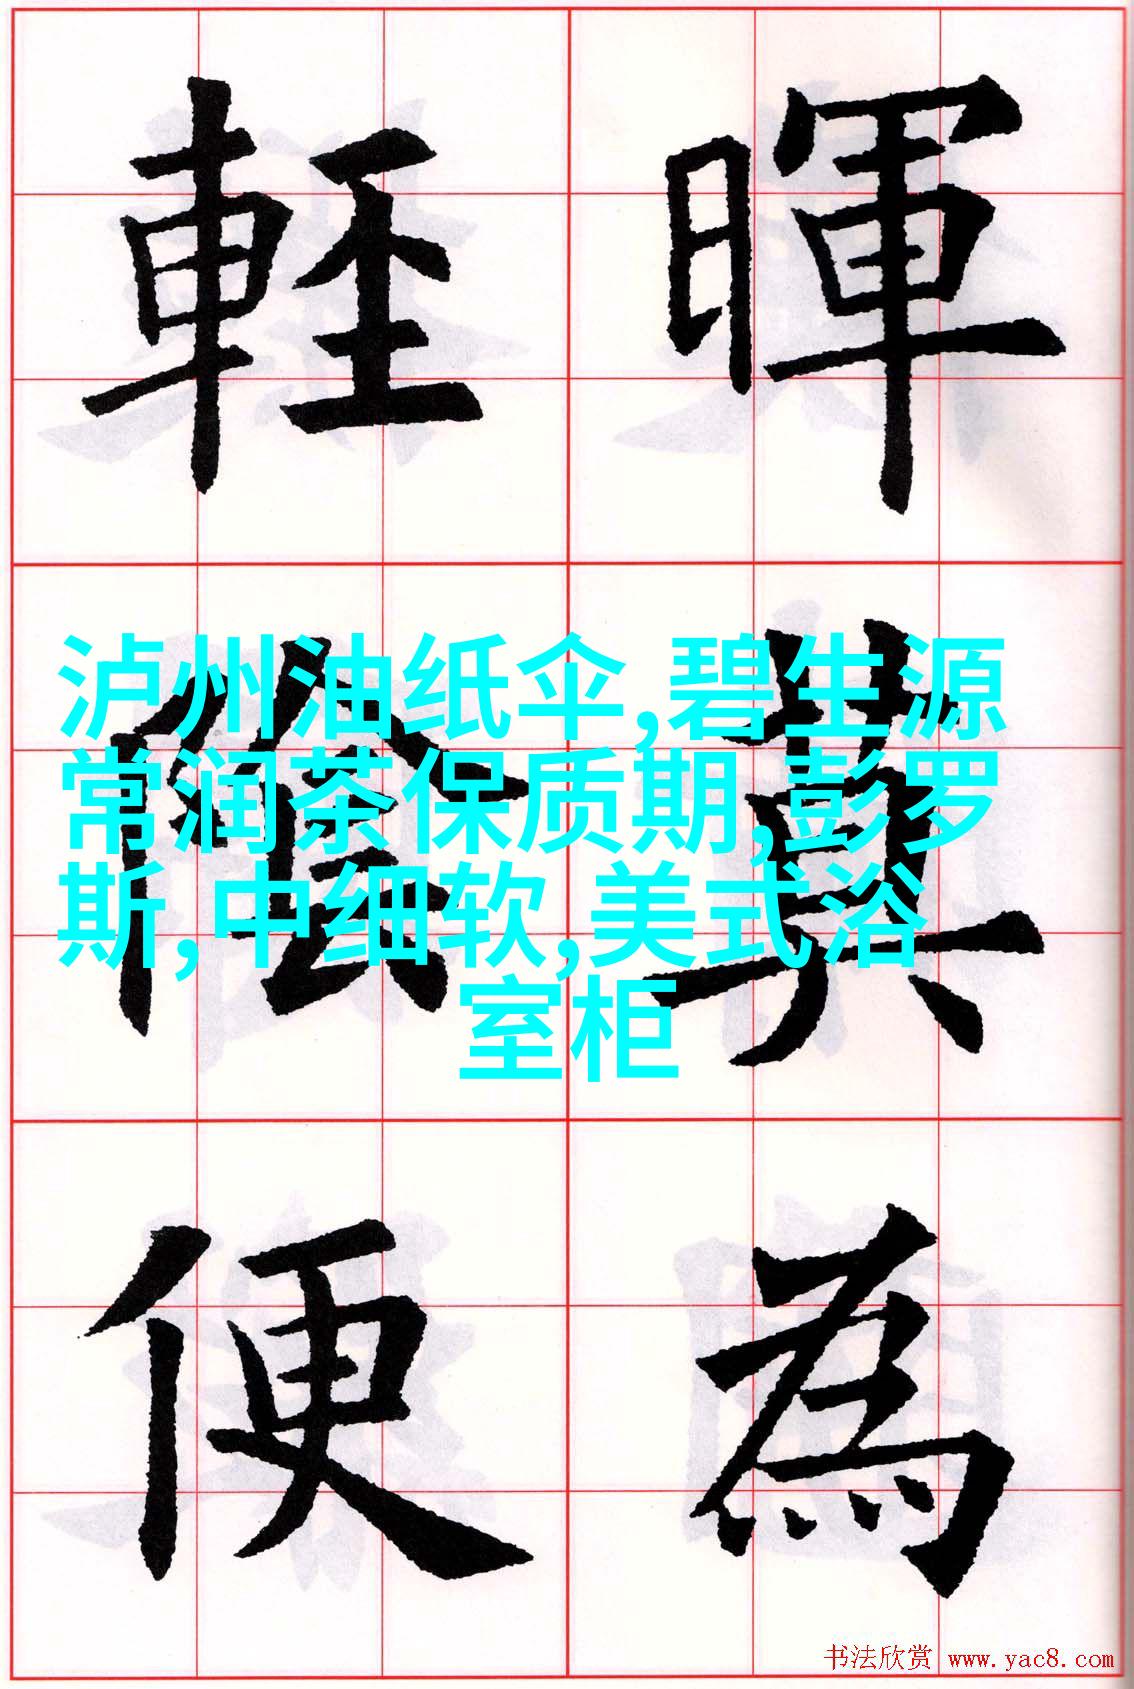 暉莫為
輕陰便
泸州油纸伞,碧生源
常润茶保质期,彭罗
斯,中细软,美式浴
室柜
书法欣赏 www.yac8.com